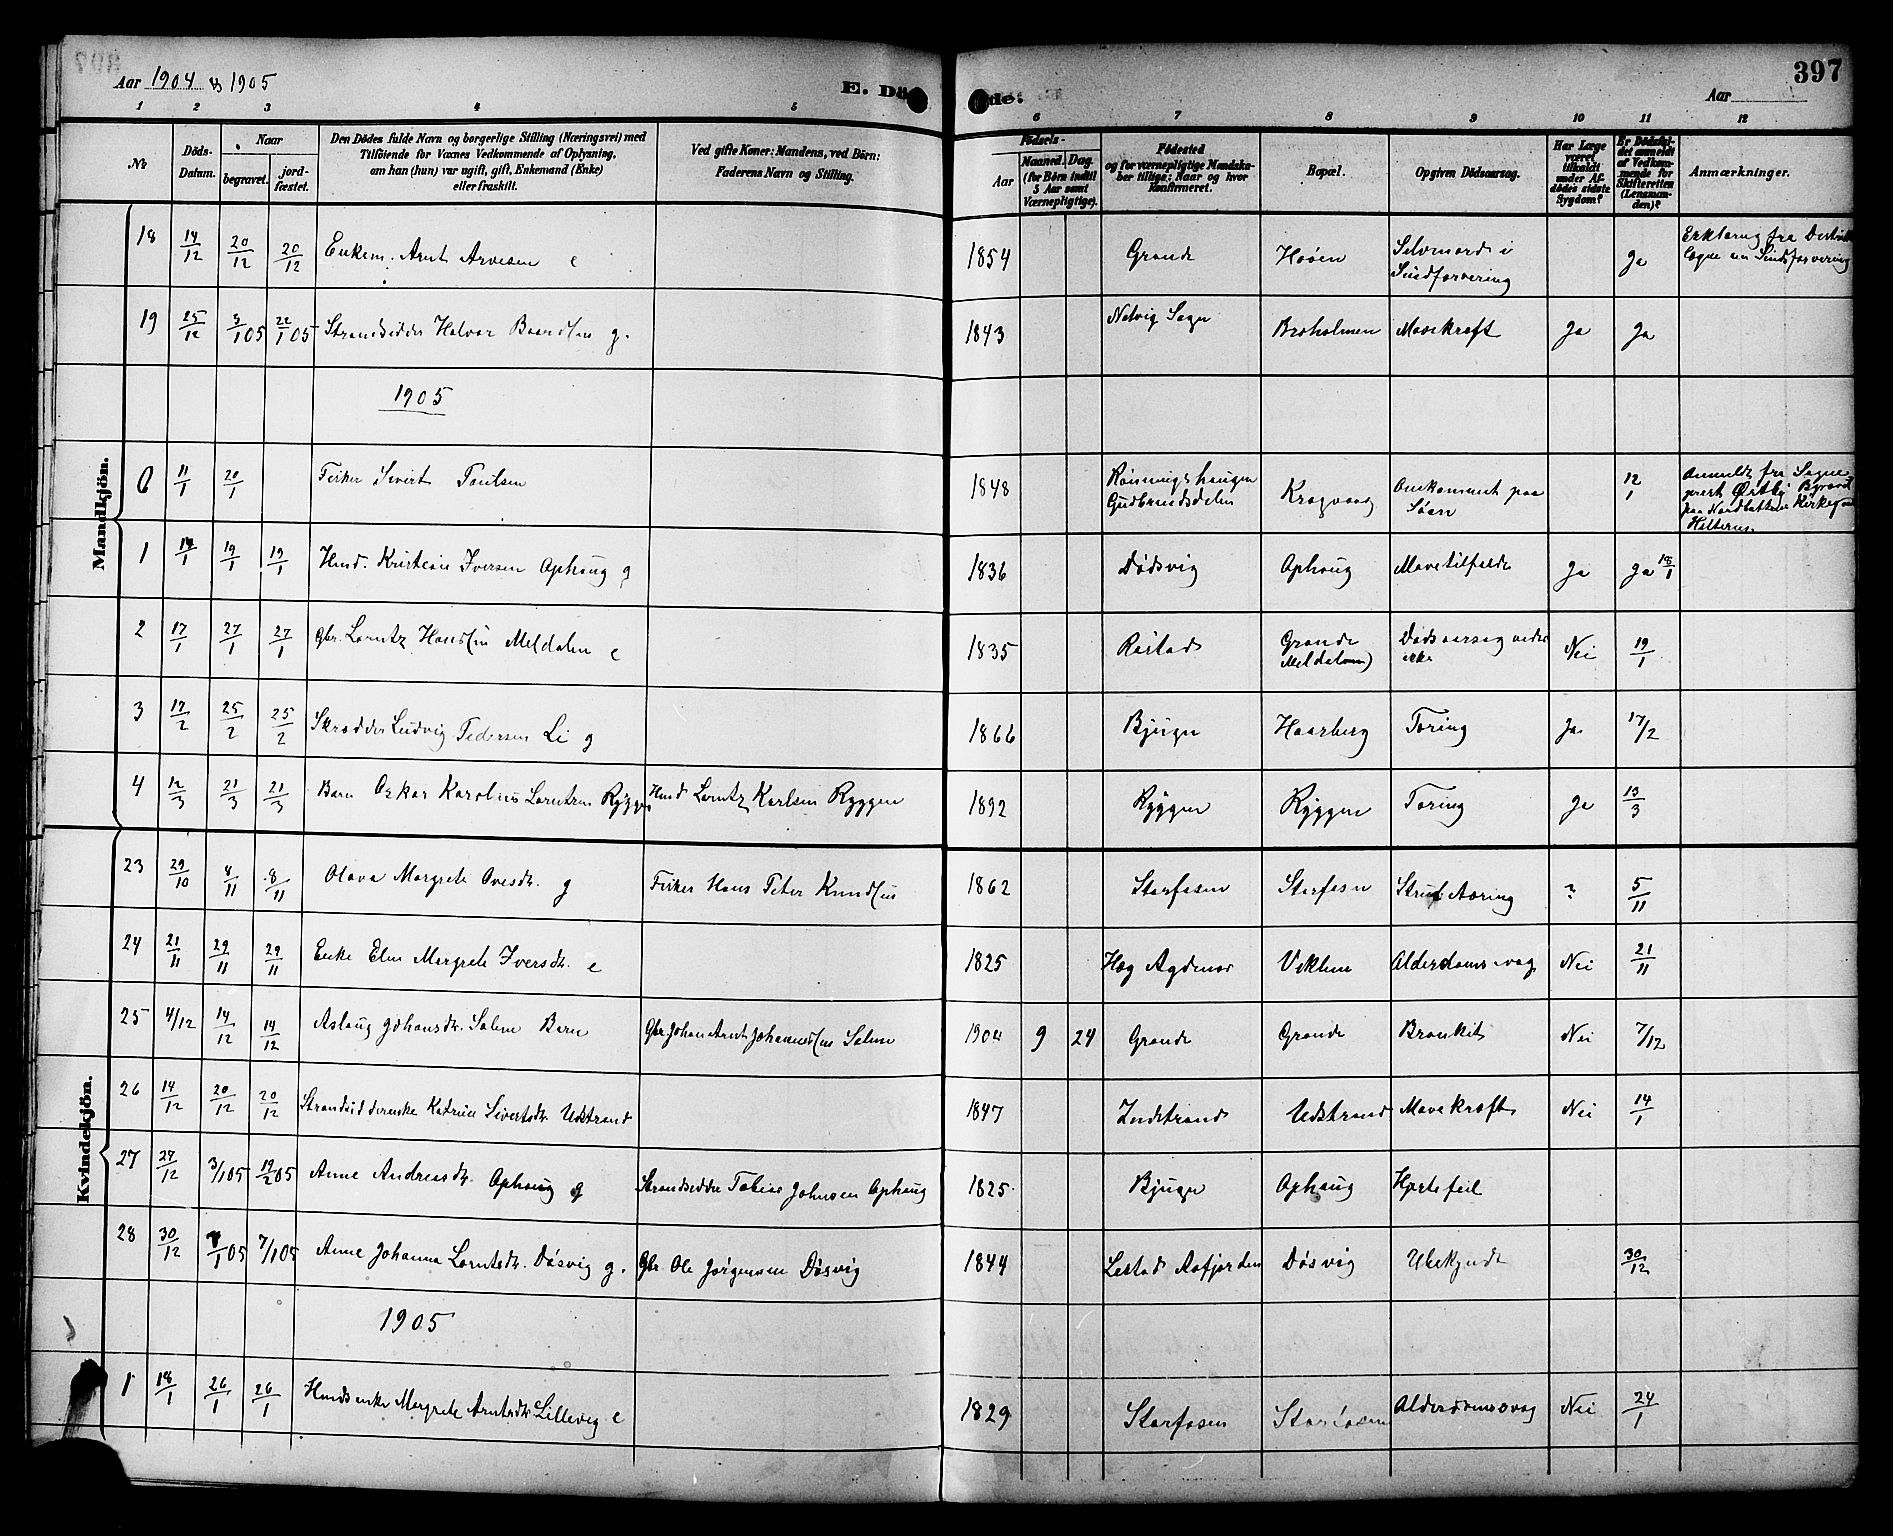 Aar 1904 og 1905
E. Döde.
397
Aar
1 2 3 4 5 6 7 8 9 10 11 12
No
Döds-Datum.
Naar
begravet.
jordfæstet.
Den Dödes fulde Navn og borgerlige Stilling (Næringsvei) med
Tilföiende for Voxnes Vedkommende af Oplysning,
om han (hun) var ugift, gift, Enkemand (Enke)
eller fraskilt.
Ved gifte Koner: Mandens, ved Börn:
Faderens Navn og Stilling.
Födsels-
Aar
Maaned. Dag.
(for Börn indtil 5 Aar samt Værnepligtige).
Födested
og for værnepligtige Mandskaber tillige: Naar og hvor konfirmeret.
Bopæl.
Opgiven Dödsaarsag.
Har Læge været tilkaldt under Afdödes sidste Sygdom?
Er Dödsfaldet anmeldt af Vedkommende for Skifteretten (Lensmanden)?
Anmærkninger.
Mandkjön.
18 14/12 20/12 20/12 Enkem. Arnt Arvesen e 1854 Grande Høien Selvmord i Sindforvirring Ja Erklæring fra
19 25/12 3/1 05 22/1 05 Strandsidder Halvor Baardsen g. 1843 Sogn Broholmen Mavekræft Ja Ja
1905
0 11/1 20/1 Fisker Sivert Paulsen 1848 Rønningshaugen Gudbrandsdalen Kragvaag Omkommet paa Søen 12/1 Anmeldt fra Sogneprest Østbÿ
1 14/1 19/1 19/1 Husd. Kristian Iversen Ophaug g 1836 Dødsvig Ophaug Mavetilfælde Ja Ja 18/1
2 17/1 27/1 27/1 Gbr. Lorntz Hansen Meldalen e 1835 Røstad Grande Meldalen) Dødsaarsag vides ikke Nei 19/1
3 17/2 25/2 25/2 Skrædder Ludvig Pedersen Li g 1866 Bjugn Haarberg Tæring Ja 17/2
4 12/3 21/3 21/3 Barn Oskar Karolius Lorntzen Ryggen Husd Lorntz Karlsen Ryggen 1892 Ryggen Ryggen Tæring Ja 13/3
Kvindekjön.
23 29/10 8/11 8/11 Olava Margrete Ovesdtr. g Fisker Hans Peter Knudsen 1862 Storfosen Storfosen Strubetæring ? 5/11
24 21/11 29/11 29/11 Enke Elen Margrete Iversdtr. e 1825 Agdenes Viklem Alderdomssvag Nei 21/11
25 4/12 14/12 14/12 Aslaug Johansdtr. Solem Barn Gbr. Johan Arnt Johannessen Solem 1904 9 24 Grande Grande Bronkit Nei 7/12
26 14/12 20/12 20/12 Strandsidderenke Katrine Sivertsdtr. Udstrand 1847 Indstrand Udstrand Mavekræft Nei 14/1
27 27/12 3/1 05 19/2 05 Anne Andreasdtr. Ophaug g Strandsidder Tobias Johnsen Ophaug 1825 Bjugn Ophaug Hjertefeil
28 30/12 7/1 05 7/1 05 Anne Johanna Lorntsdtr. Døsvig g. Gbr. Ole Jørgensen Døsvig 1844 Aafjorden Døsvig Ubekjendt 30/12
1905
1 18/1 26/1 26/1 Husdsenke Margrete Arntsdtr. Lillevig e 1829 Storfosen Storfosen Alderdomssvag Nei 24/1